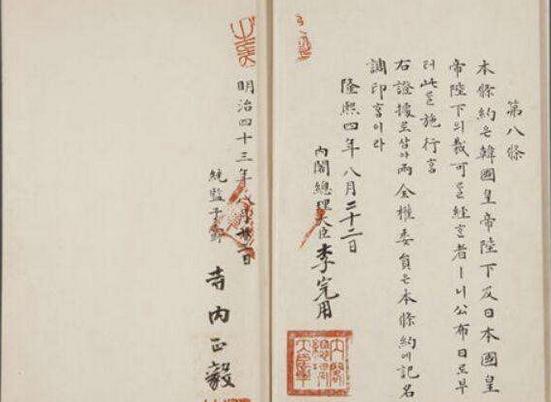 第八條
本條約은韓國皇帝陛下及日本國皇
帝陛下의裁可를經ᄒᆞᆫ者ㅣ니公布日로부
터此를施行홈
右證據로삼아兩全權委員은本條約에記名
調印홈이라
隆熙四年八月二十二日
內閣總理大臣李完用
明治四十三年八月廿二日
統監子爵 寺內正毅